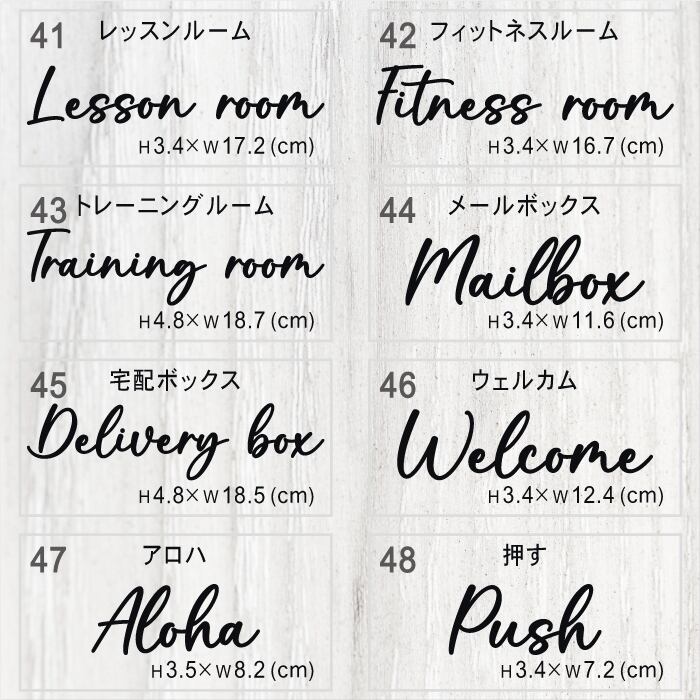 41 レッスンルーム
Lesson room
H3.4×W17.2(cm)
42 フィットネスルーム
Fitness room
H3.4×W16.7(cm)
43 トレーニングルーム
Training room
H4.8×W18.7(cm)
44 メールボックス
Mailbox
H3.4×W11.6(cm)
45 宅配ボックス
Delivery box
H4.8×W18.5(cm)
46 ウェルカム
Welcome
H3.4×W12.4(cm)
47 アロハ
Aloha
H3.5×W8.2(cm)
48 押す
Push
H3.4×W7.2(cm)